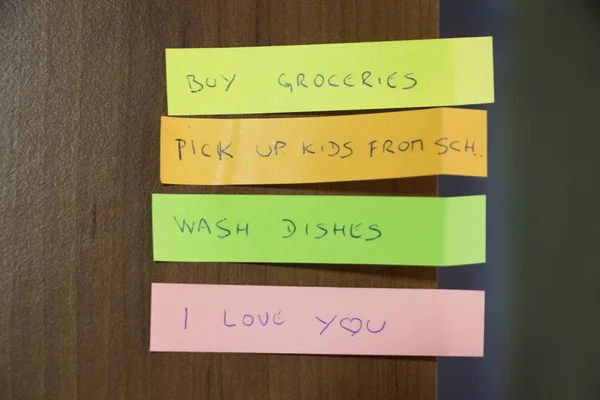 BUY GROCERIES
PICK UP KIDS FROM SCH.
WASH DISHES
I LOVE YOU